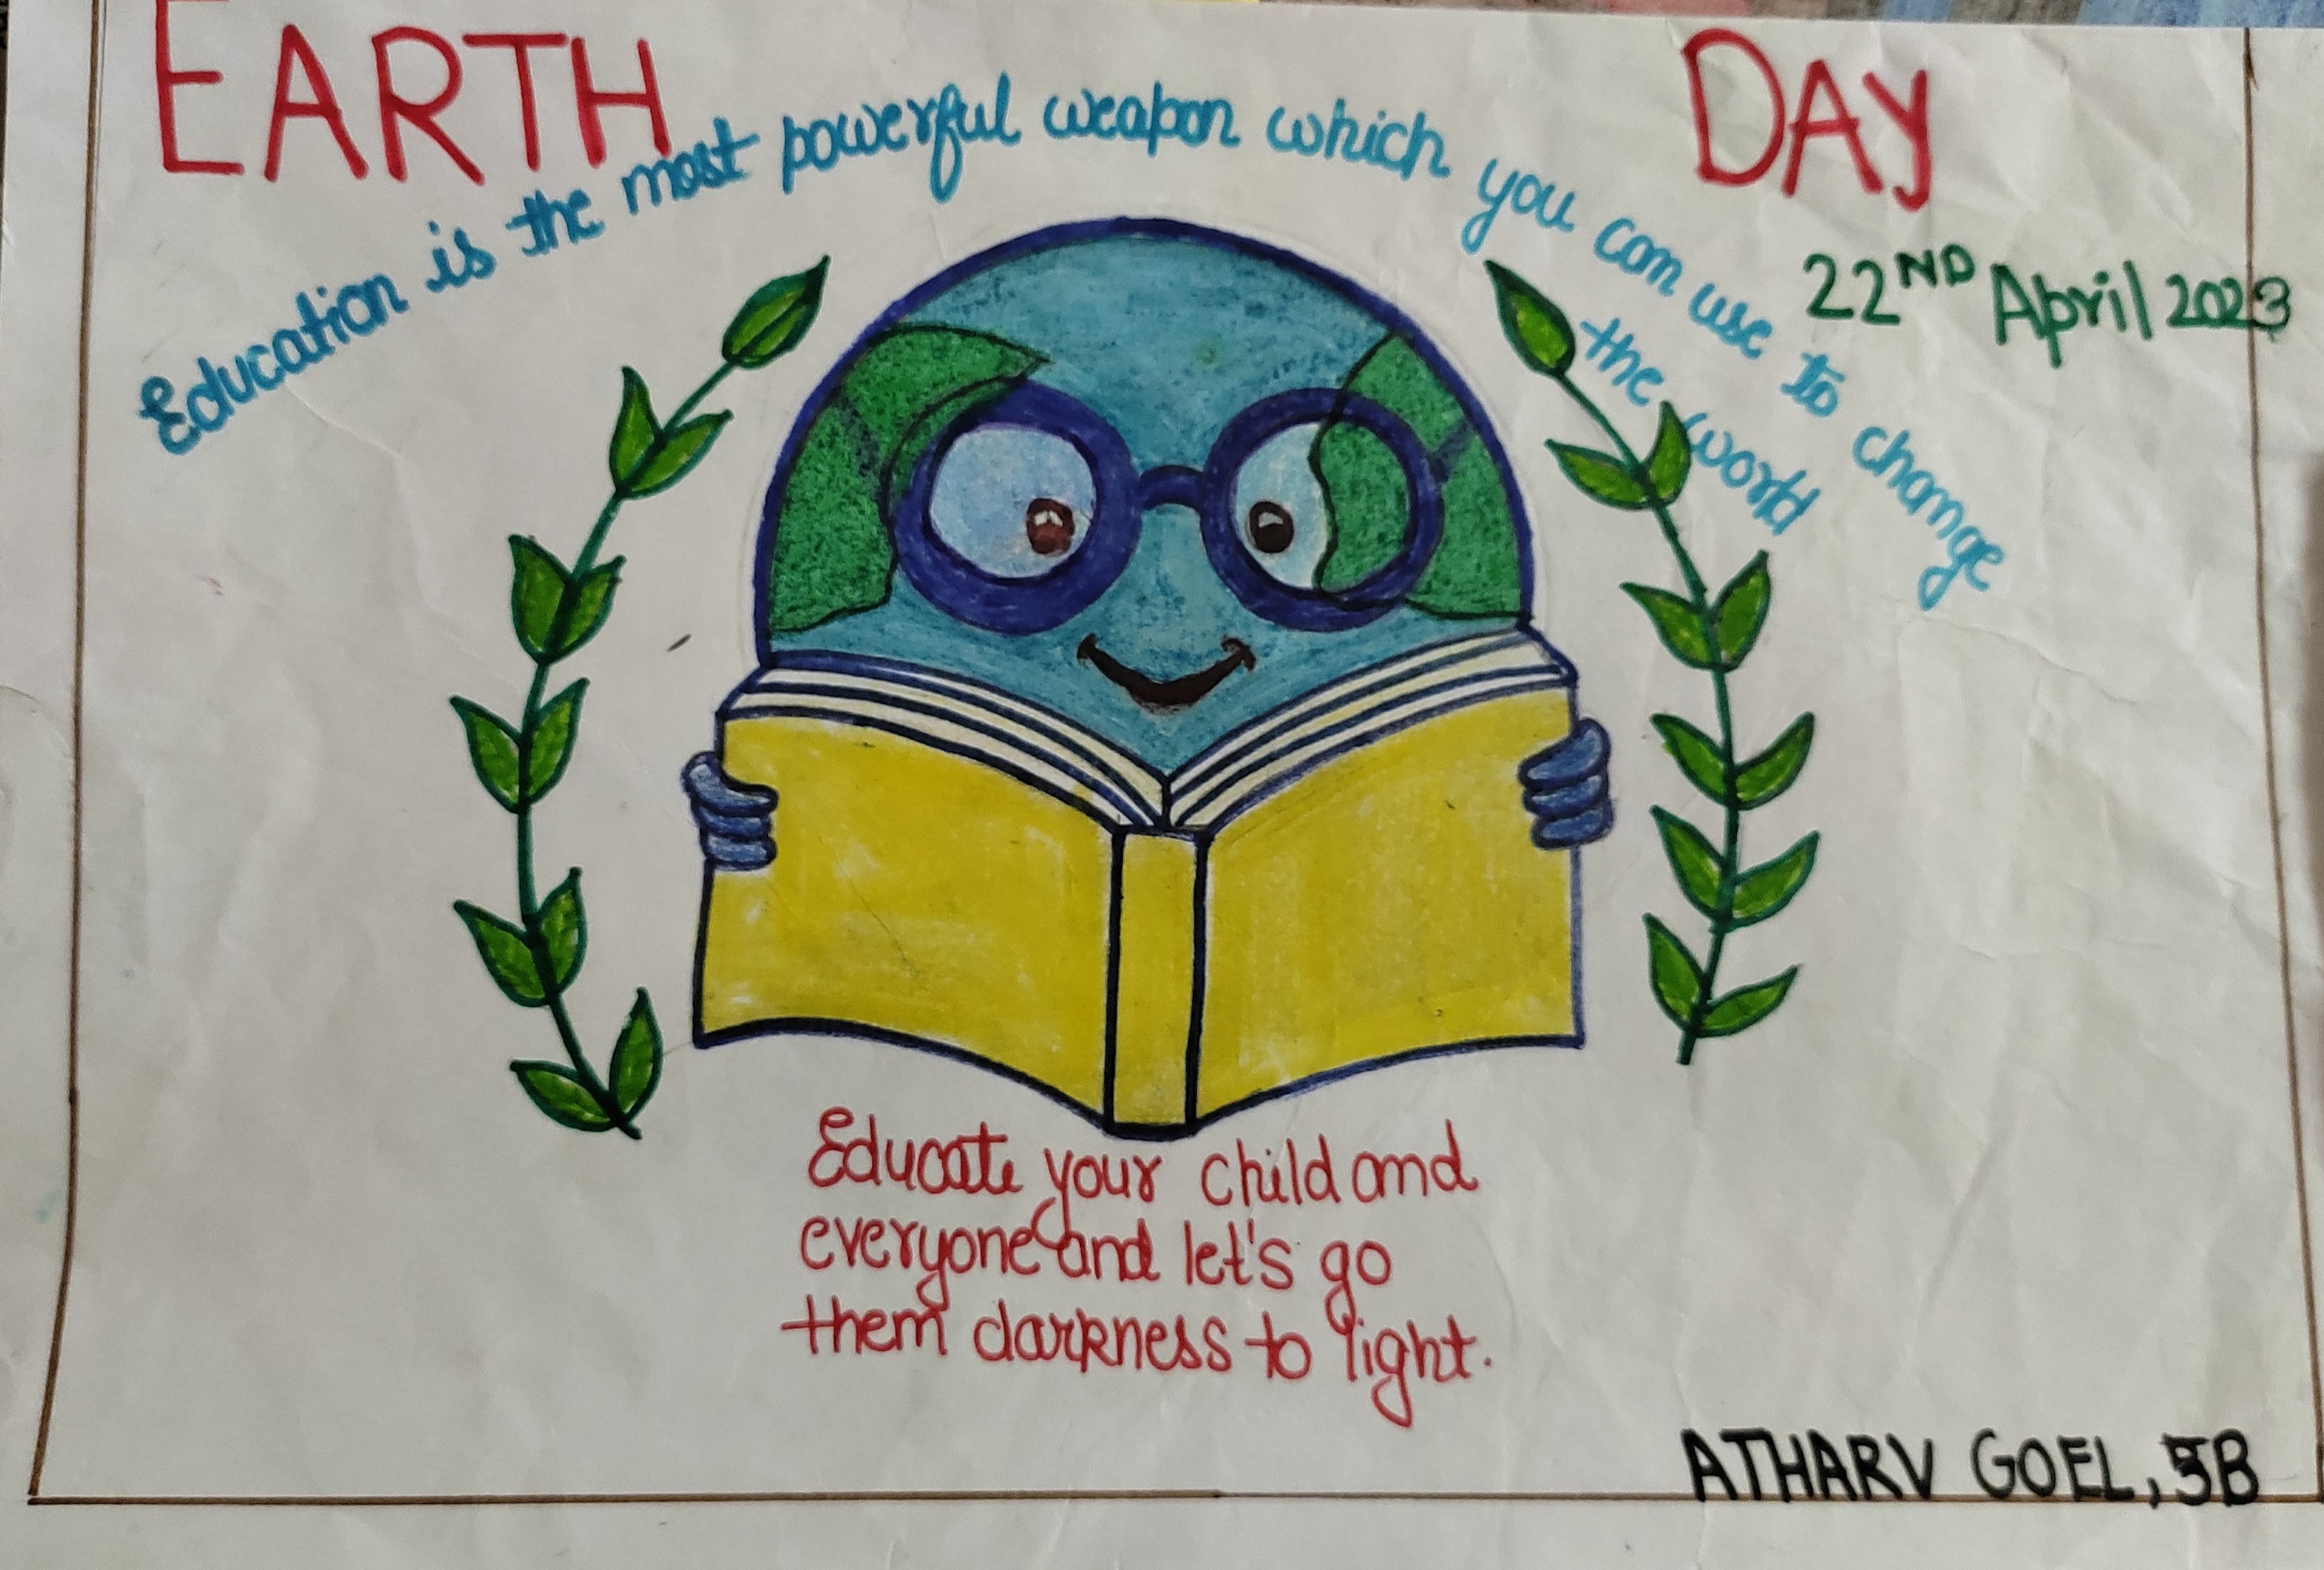 EARTH DAY
Education is the most powerful weapon which you can use to change
the world
22ND April 2023
Educate your child and
everyone and let's go
them darkness to light.
ATHARV GOEL, 5B